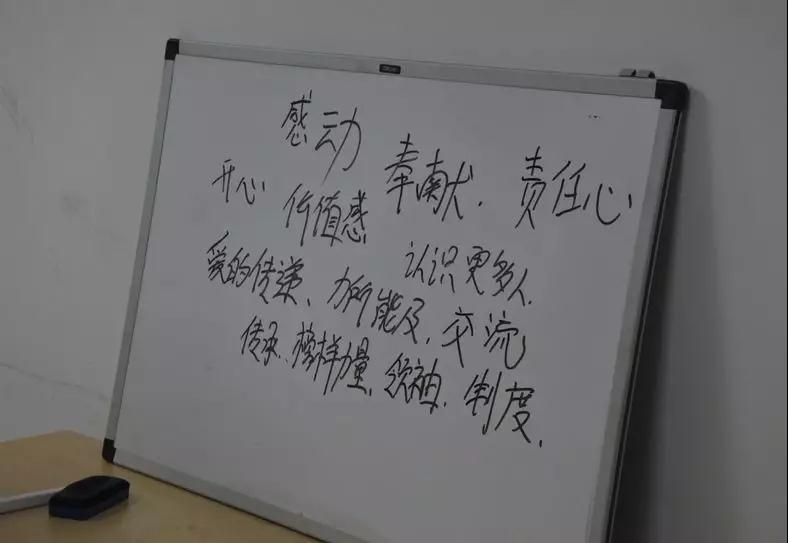 感动
奉献. 责任心
开心 价值感
认识更多人.
爱的传递、力所能及. 交流
传承. 榜样力量. 领袖. 制度.